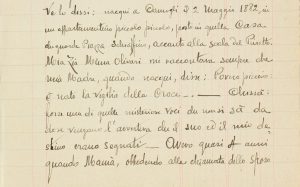 Ve lo dissi: nacqui a Camogli il 2 Maggio 1882, in
un appartamentino piccolo piccolo, posto in quella Casa
da grande Piazza Schiaffino, accanto alla scala da
Mia Zia Maria Olivari mi raccontava sempre che
mia Madre, quando nacqui, disse: Povero piccino:
è nato la Vigilia della Croce. —
una di quelle misteriose voci da non si sà da
dove vengano l'avvertiva che il suo ed il mio de-
stino erano segnati. — Avevo quasi 4 anni
quando Mamà, obbedendo alla chiamata dello Sposo